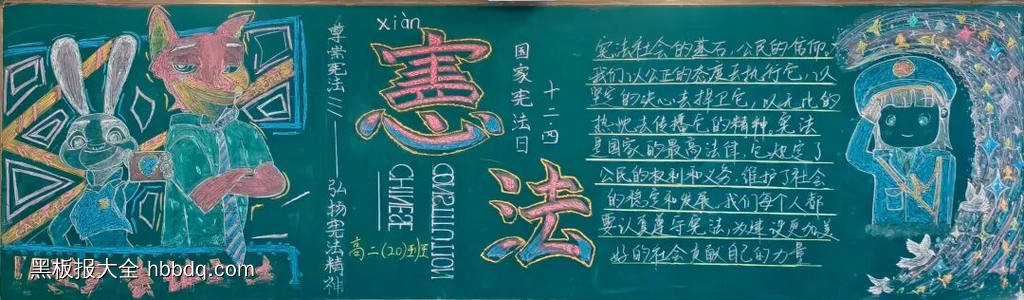 尊崇宪法
弘扬宪法精神
xiàn
憲
法
CHINESE
CONSTITUTION
国家宪法日
十二·四
高二(20)班
宪法社会的基石，公民的信仰，
我们以公正的态度去执行它，以
坚定的决心去捍卫它，以无比的
热忱去传播它的精神，宪法
是国家的最高法律，它规定了
公民的权利和义务，维护了社会
的稳定和发展，我们每个人都
要认真遵守宪法，为建设更加美
好的社会贡献自己的力量
黑板报大全 hbbdq.com